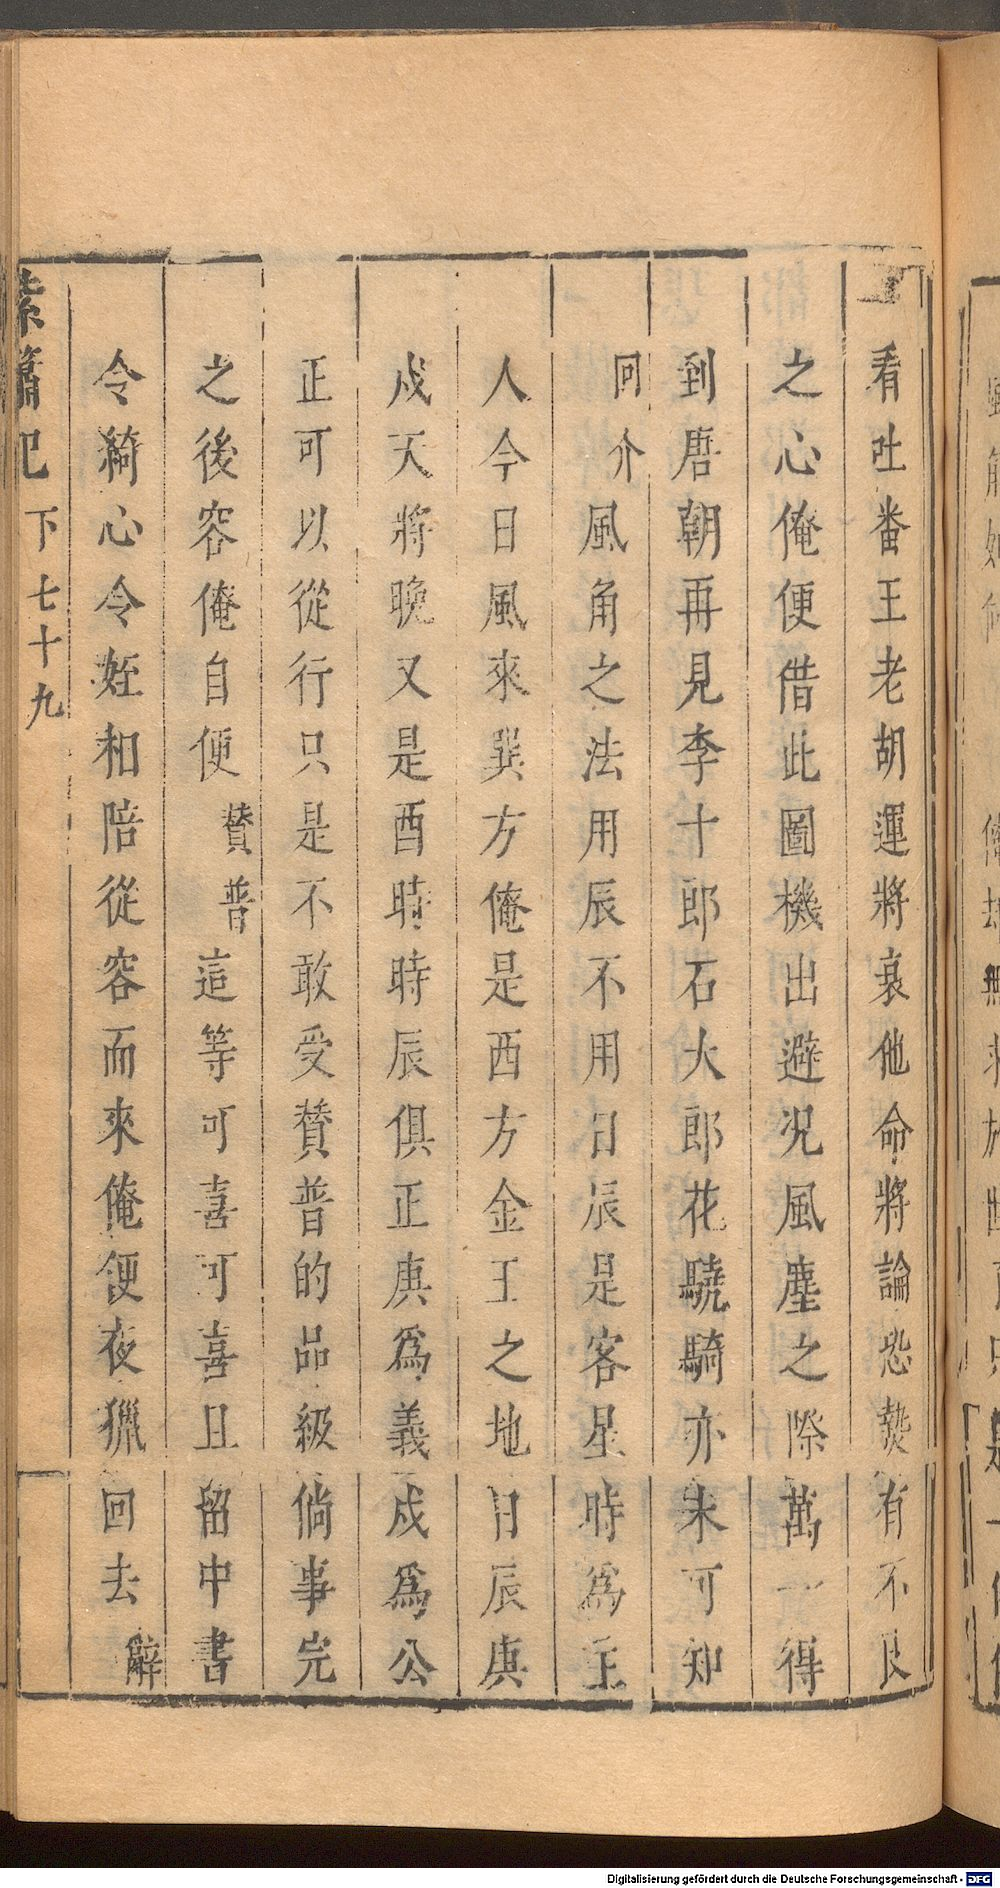 看吐番王老胡運將衰他命將論恐𤍠有不良
之心俺便借此圖機出避况風塵之際萬一賞得
到唐朝再見李十郎石大郎花驍騎亦未可知
回介風角之法用辰不用日辰是客星時為主
人今日風來巽方俺是西方金王之地日辰庚
戍天將晚又是酉時時辰俱正庚爲義戍爲公
正可以從行只是不敢受賛普的品級倘事完
之後容俺自便賛普這等可喜可喜且留中書
令綺心令姪相陪從容而來俺便夜獵回去辭
紫簫記 下 七十九
Digitalisierung gefördert durch die Deutsche Forschungsgemeinschaft - DFG